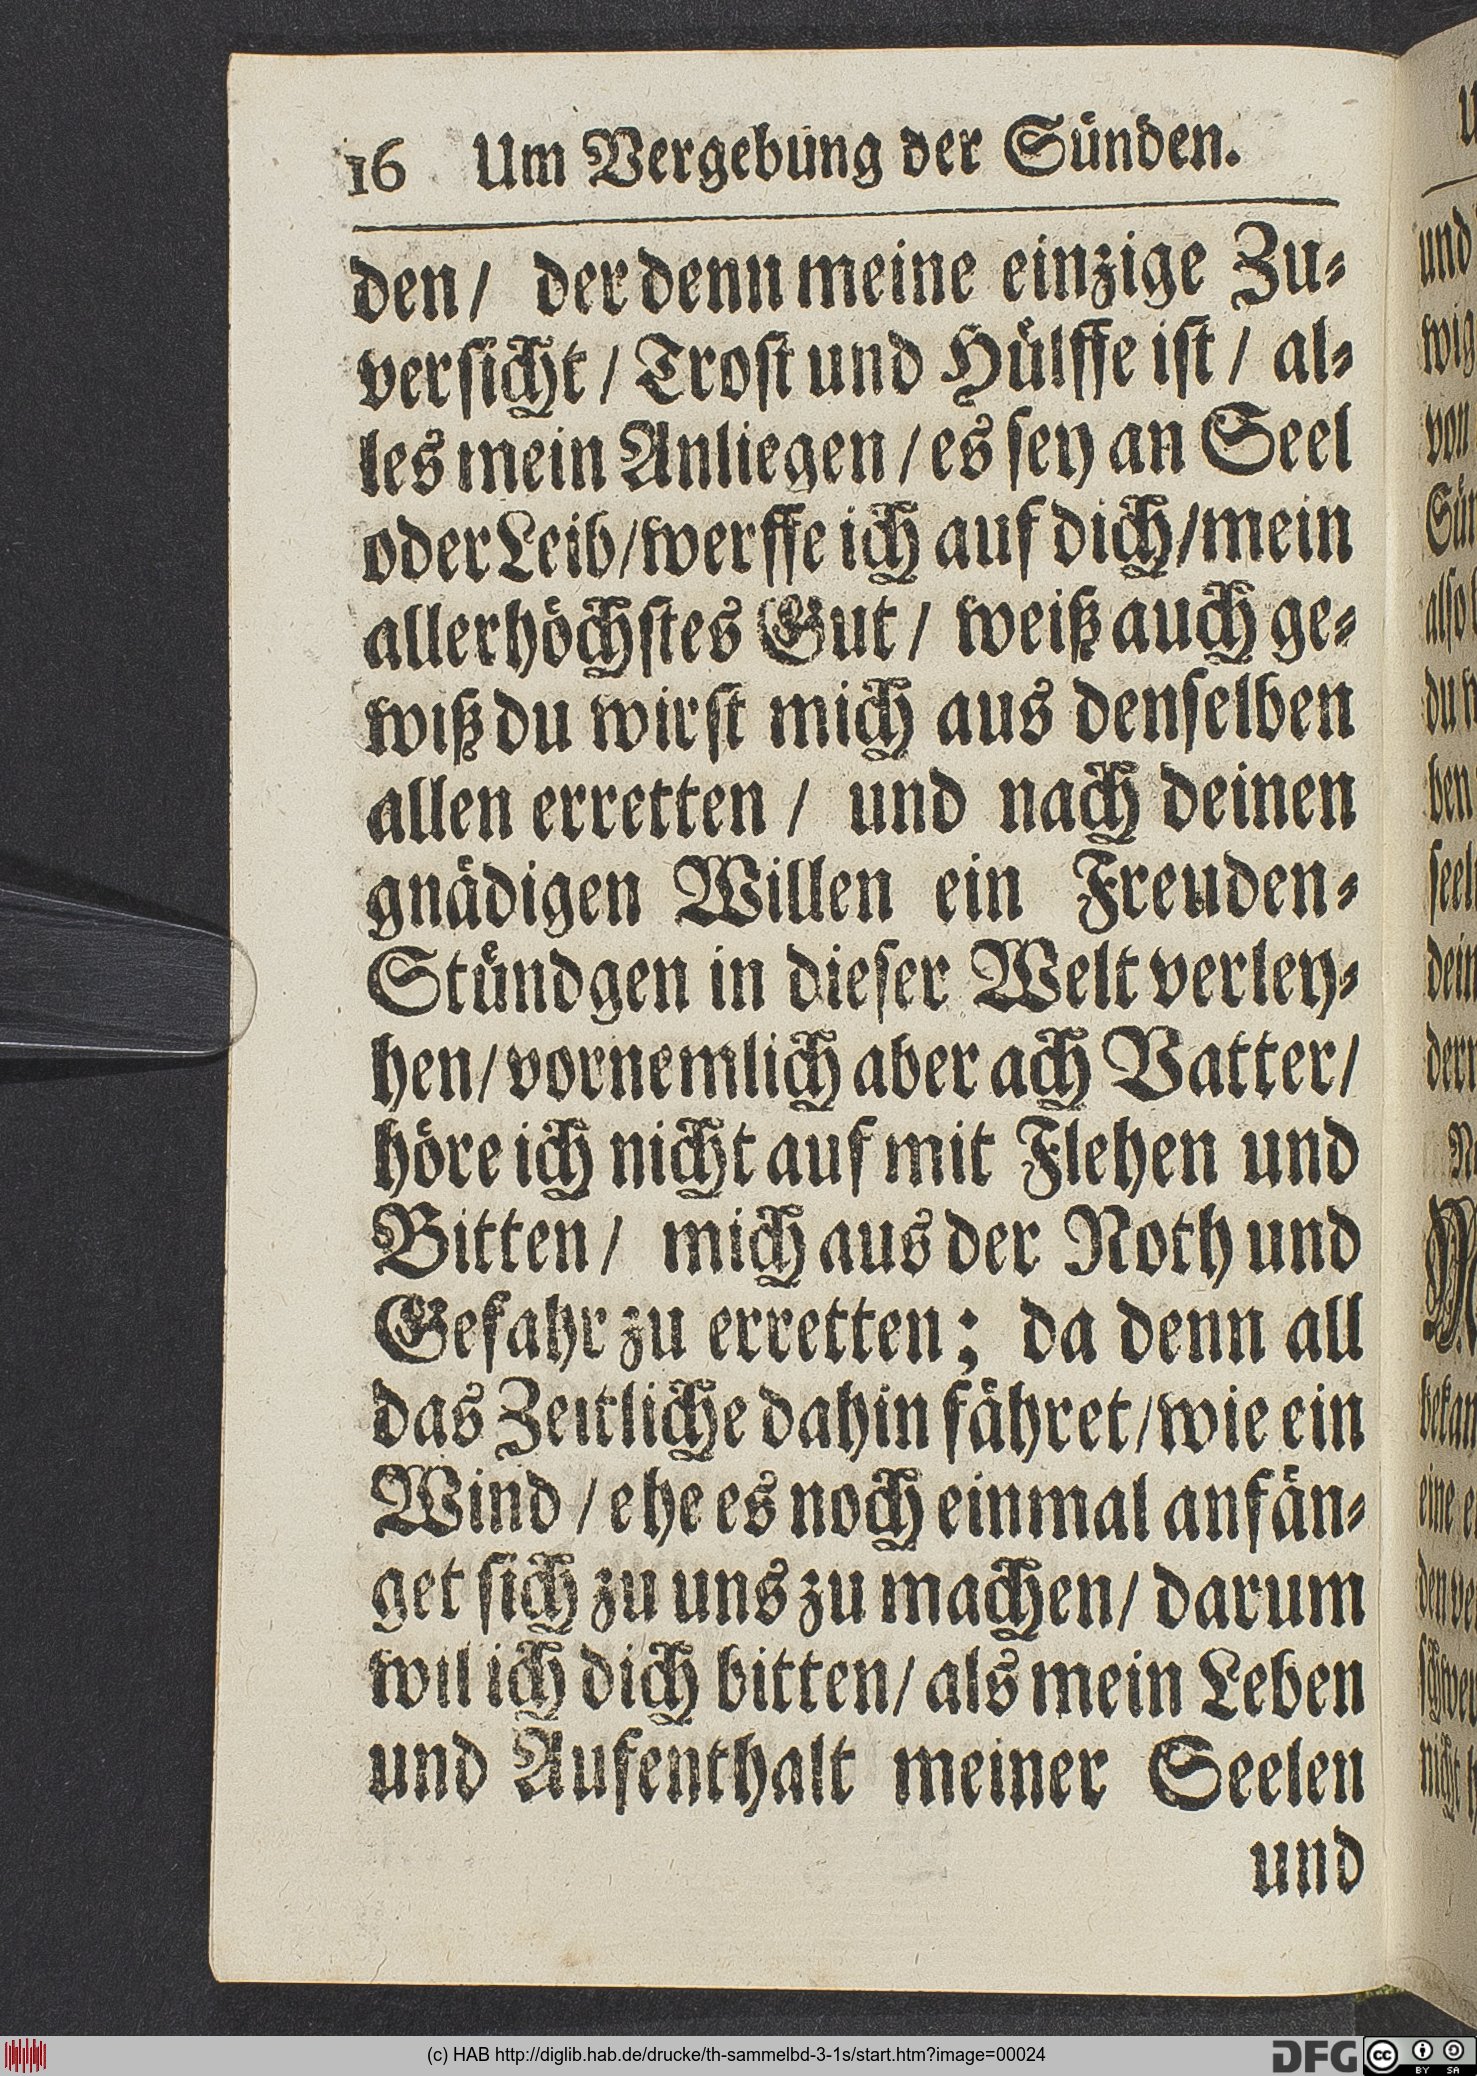 16 Um Vergebung der Sünden.
den/ der denn meine einzige Zu-
versicht/ Trost und Hülffe ist/ al-
les mein Anliegen/ es sey an Seel
oder Leib/ werffe ich auf dich/ mein
allerhöchstes Gut/ weiß auch ge-
wiß du wirst mich aus denselben
allen erretten/ und nach deinen
gnädigen Willen ein Freuden-
Stündgen in dieser Welt verley-
hen/ vornemlich aber ach Vatter/
höre ich nicht auf mit Flehen und
Bitten/ mich aus der Noth und
Gefahr zu erretten; da denn all
das Zeitliche dahin fähret/ wie ein
Wind/ ehe es noch einmal anfän-
get sich zu uns zu machen/ darum
wil ich dich bitten/ als mein Leben
und Aufenthalt meiner Seelen
und
und
wig
von
also
ben
dein
eine
(c) HAB http://diglib.hab.de/drucke/th-sammelbd-3-1s/start.htm?image=00024
DFG
cc BY SA